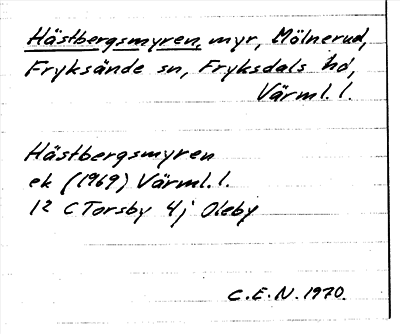 Hästbergsmyren, myr, Mölnerud,
Fryksände sn, Fryksdals hd,
Värml. l.
Hästbergsmyren
ek (1969) Värml. l.
12 C Torsby 4j Oleby
C.E.N. 1970.